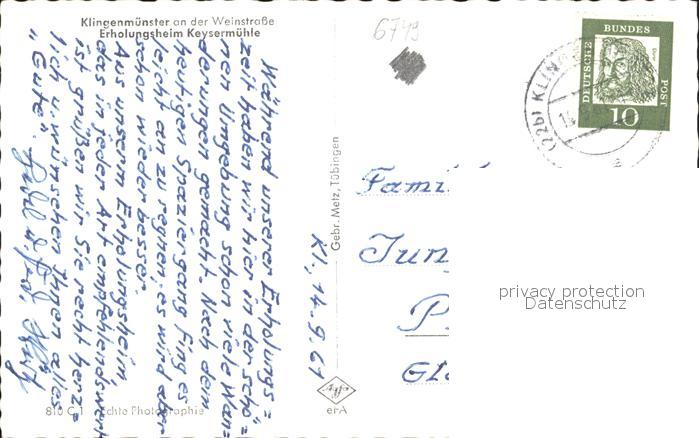 Klingenmünster an der Weinstraße
Erholungsheim Keysermühle
6749
DEUTSCHE
BUNDES
POST
10
(22b) KLIN
a
Kl., 14.9.61
Während unserer Erholungs=
zeit haben wir hier in der schö=
nen Umgebung schon viele Wan=
derungen gemacht. Nach dem
heutigen Spaziergang fing es
leicht an zu regnen, es wird aber
schon wieder besser.
Aus unserem Erholungsheim,
das in jeder Art empfehlenswert
ist grüßen wir Sie recht herz=
lich u. wünschen Ihnen alles
"Gute".
Gebr. Metz, Tübingen
Fami
Jun
P
Gl
privacy protection
Datenschutz
Agfa
erA
Echte Photographie